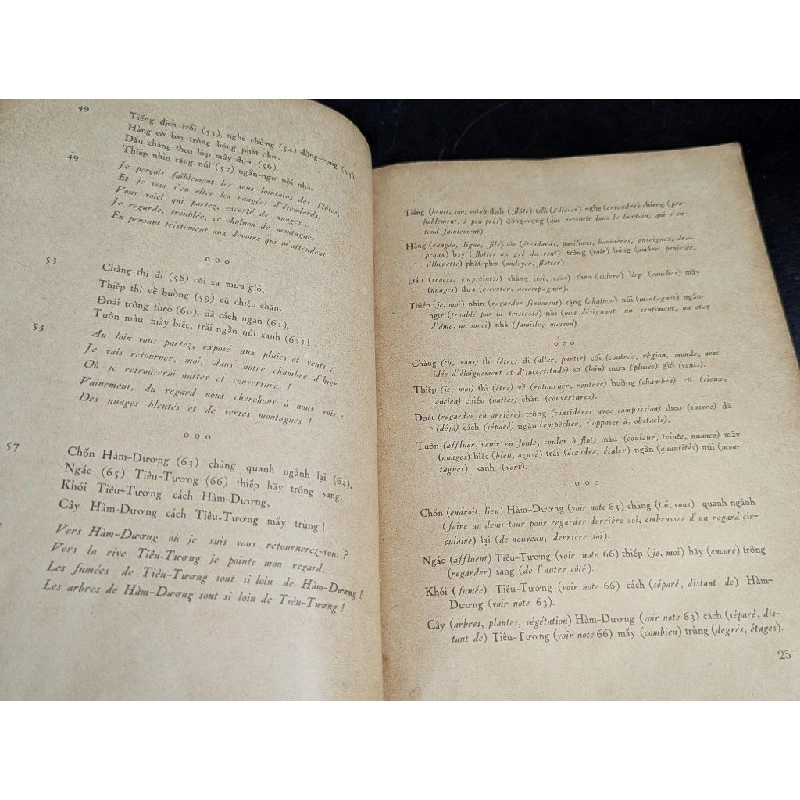 49
Tiếng địch thổi (53), nghe chừng (54) đồng-vọng (55)
Hàng cờ bay trông bóng phất-phơ.
Dấu chàng theo lớp mây đưa (56).
Thiếp nhìn rặng núi (57) ngẩn-ngơ nỗi nhà.
49
Je perçois faiblement les sons lointains des flûtes,
Et je vois s'en aller les rangées d'étendards.
Vous voici qui partez, escorté de nuages...
Je regarde, troublée, ce chaînon de montagnes
En pensant tristement aux devoirs qui m'attendent
53
Chàng thì đi (58) cõi xa mưa gió,
Thiếp thì về buồng (59) cũ chiếu chăn.
Đoái trông theo (60), đã cách ngăn (61),
Tuôn màu mây biếc, trải ngần núi xanh (62) !
53
Au loin vous partez, exposé aux pluies et vents ;
Je vais retourner, moi, dans notre chambre d'hier
Où je retrouverai nattes et couverture !
Vainement, du regard nous cherchons à nous voir :
Des nuages bleutés et de vertes montagnes !
57
Chốn Hàm-Dương (63) chàng quanh ngảnh lại (64),
Ngác (65) Tiêu-Tương (66) thiếp hãy trông sang.
Khói Tiêu-Tương cách Hàm-Dương,
Cây Hàm-Dương cách Tiêu-Tương mấy trùng !
Vers Hàm-Dương où je suis vous retournerez-vous ?
Vers la rive Tiêu-Tương je pointe mon regard.
Les fumées de Tiêu-Tương sont si loin de Hàm-Dương !
Les arbres de Hàm-Dương sont si loin de Tiêu-Tương !
Tiếng (bruit, son, voix) địch (flûte) thổi (élever) nghe (entendre) chừng (pro-
bablement, à peu près) đồng-vọng (qui retentit dans le lointain, qui s'é-
tend faiblement).
Hàng (rangée, ligne, file) cờ (étendards, pavillons, bannières, enseignes, dra-
peaux) bay (flotter au gré du vent) trông (voir) bóng (ombre projetée,
silhouette) phất-phơ (ondoyer, flotter).
Dấu (traces, empreintes) chàng (toi, vous) theo (suivre) lớp (couches) mây
(nuages) đưa (escorter, accompagner).
Thiếp (je, moi) nhìn (regarder fixement) rặng (chaînon) núi (montagnes) ngẩn-
ngơ (troublé par la tristesse) nỗi (mot désignant un sentiment, un état
d'âme, un souci) nhà (famille, maison)
Chàng (tu, vous) thì (être) đi (aller, partir) cõi (contrée, région, monde, avec
idée d'éloignement et d'incertitude) xa (loin) mưa (pluies) gió (vents).
Thiếp (je, moi) thì (être) về (rebrousser, rentrer) buồng (chambre) cũ (vieux,
ancien) chiếu (nattes) chăn (couvertures).
Đoái (regarder en arrière) trông (considérer avec compassion) theo (suivre) đã
(déjà) cách (séparé) ngăn (empêcher, s'opposer à, obstacle).
Tuôn (affluer, venir en foule, couler à flot) màu (couleur, teinte, nuance) mây
(nuages) biếc (bleu, azuré) trải (étendre, étaler) ngần (quantités) núi (mon-
tagnes) xanh (vert).
Chốn (endroit, lieu) Hàm-Dương (voir note 63) chàng (toi, vous) quanh ngảnh
(faire un demi tour pour regarder derrière soi, embrasser d'un regard cir-
culaire) lại (de nouveau, derrière soi).
Ngác (affluent) Tiêu-Tương (voir note 66) thiếp (je, moi) hãy (encore) trông
(regarder) sang (de l'autre côté).
Khói (fumée) Tiêu-Tương (voir note 66) cách (séparé, distant de) Hàm-
Dương (voir note 63).
Cây (arbres, plantes, végétation) Hàm-Dương (voir note 63) cách (séparé, dis-
tant de) Tiêu-Tương (voir note 66) mấy (combien) trùng (degrés, étages).
25